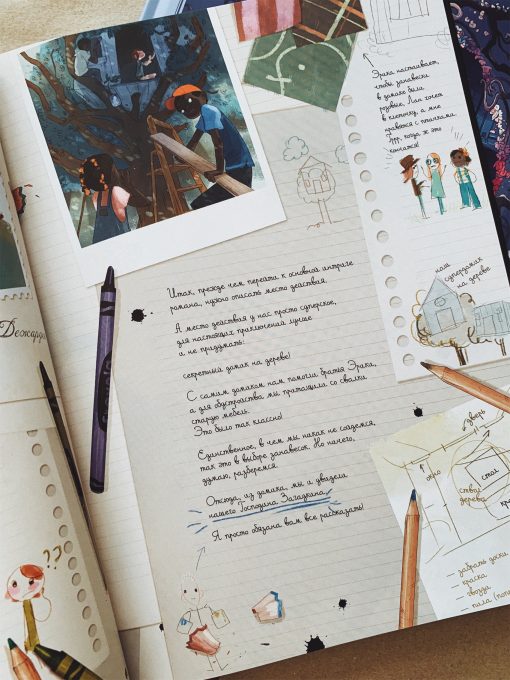 Эрика настаивает,
чтобы занавески
в домике были
розовые, Лал хочет
в клеточку, а мне
нравятся с птичками.
Грр, когда ж это
кончится!
наш
супердомик
на дереве
Дежарди
Итак, прежде чем перейти к основной интриге
романа, нужно описать место действия.
А место действия у нас просто суперское,
для настоящих приключений лучше
и не придумать:
секретный домик на дереве!
С самим домиком нам помогли братья Эрики,
а для обустройства мы притащили со свалки
старую мебель.
Это было так классно!
Единственное, в чем мы никак не сойдемся,
так это в выборе занавесок. Но ничего,
думаю, разберемся.
Отсюда, из домика, мы и увидели
нашего Господина Загадкина,
Я просто обязана вам все рассказать!
дверь
окно
стол
ствол
дерева
— забрать доски
— краска
— гвозди
— пила
??